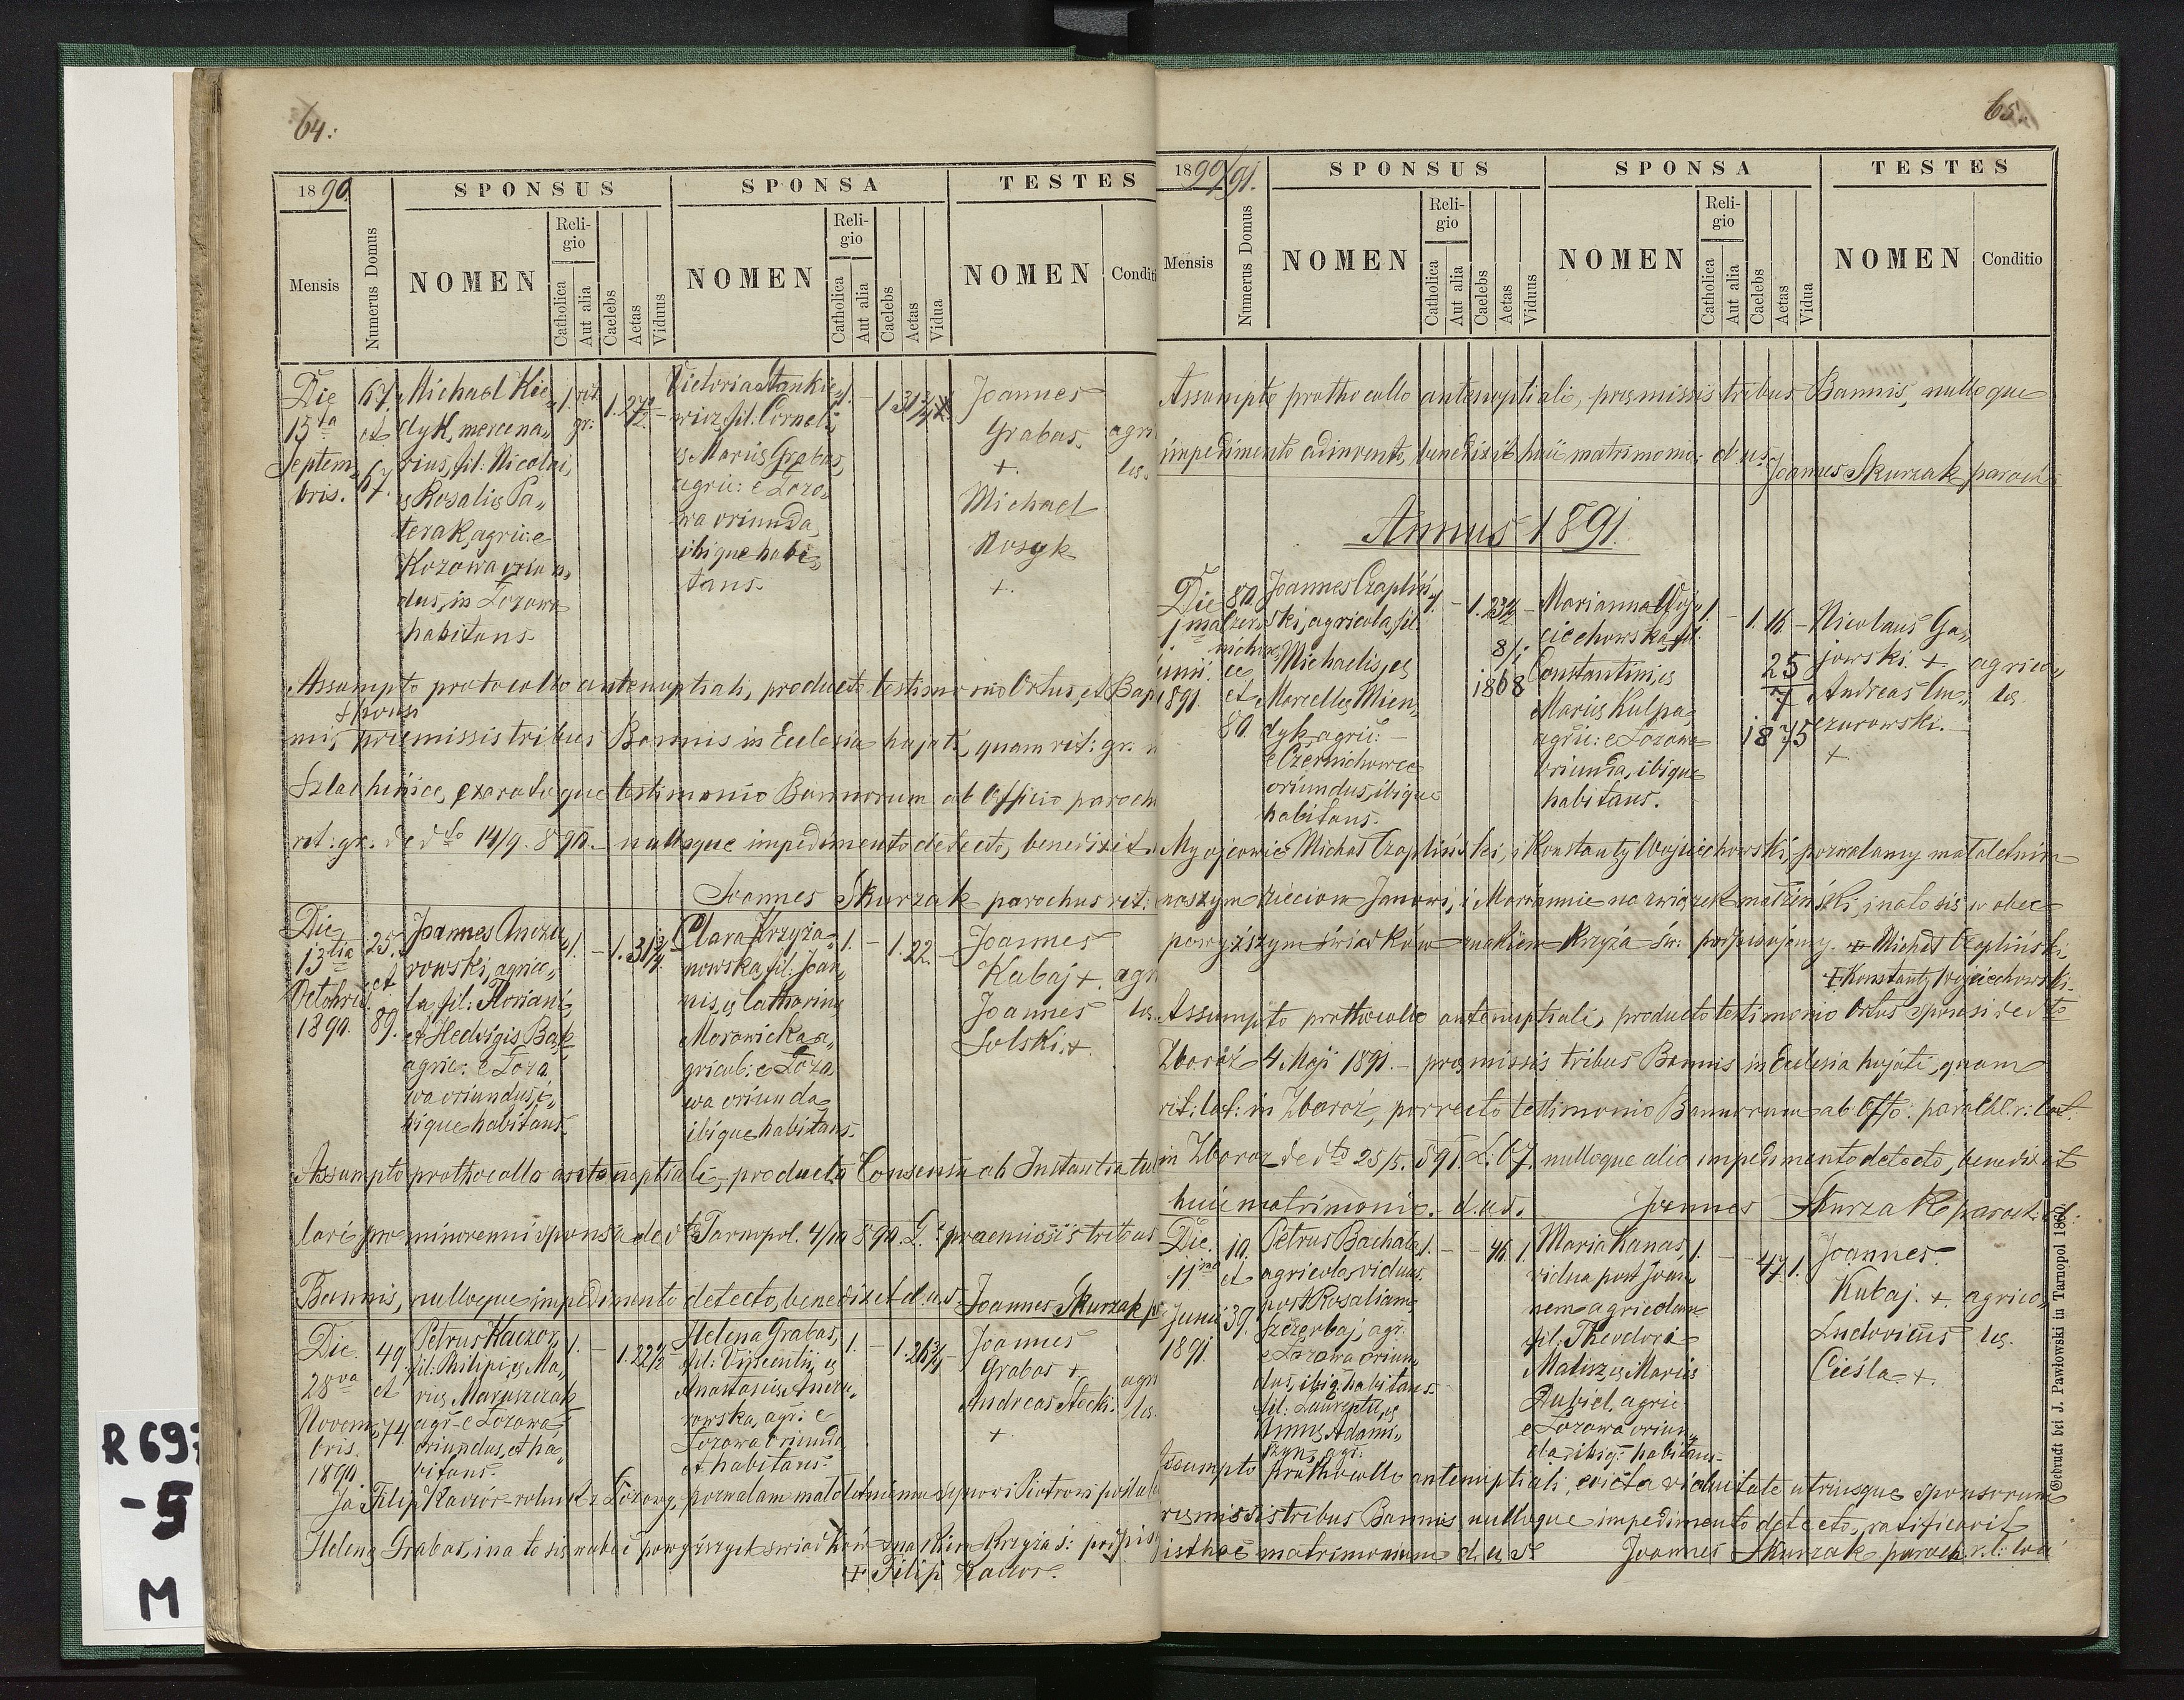 64.
1890.
SPONSUS
SPONSA
TESTES
Mensis
Numerus Domus
NOMEN
Religio
Catholica
Aut alia
Caelebs
Aetas
Viduus
NOMEN
Religio
Catholica
Aut alia
Caelebs
Aetas
Vidua
NOMEN
Conditi
Die
15ta
Septem„
bris.
67.
et
67.
Michael Kie„
dyk, mercena„
rius, fil: Nicolai,
et Rosaliae Pa„
terak, agric: e
Kozowa oriun„
dus, in Łozowa
habitans.
1. rit.
gr:
1.
27½
Victoria Stankie„
wicz, fil. Cornelii,
et Mariae Grabas,
agric: e Łozo„
wa oriunda,
ibique habi„
tans.
1. – 1. 31¾
Joannes
Grabas.
+.
Michael
Nosyk
+.
agri
lae.
Assumpto protocollo antenuptiali, producto testimonio Ortus, et Bap
sponsi
mi, praemissis tribus Bannis in Ecclesia hujati, quam rit: gr: in
Szlachcińce, exaratoque testimonio Bannorum ab Officio paroch
rit: gr. de dto 14/9. 890. – nulloque impedimento detecto, benedixit
Joannes Skurzak parochus rit:
Die
13tia
Octobris
1890.
25.
et
89.
Joannes Anczu„
rowski, agrico„
la, fil: Floriani,
et Hedvigis Bąk
agric: e Łozo
wa oriundus, i„
bique habitans.
1. – 1. 31¾
Clara Krzyża„
nowska, fil: Joan„
nis, et Catharinae
Morawicka a„
gricol: e Łozo
wa oriunda
ibique habitans.
1. – 1. 22. –
Joannes
Kubaj +.
Joannes
Solski. +.
agri
lae.
Assumpto prothocollo antenuptiali, producto Consensu ab Instantia tute
lari pro minorenni sponsa de dto Tarnopol. 4/10 890. L: praemissis tribus
Bannis, nulloque impedimento detecto, benedixit d. u. s. Joannes Skurzak p
Die
28va
Novem„
bris.
1890.
49.
et
74.
Petrus Kaczor,
fil: Philipi, et Ma„
riae Maruszczak
agr: e Łozowa
oriundus, et ha„
bitans.
1. – 1. 22½
Helena Grabas,
fil: Vincentii, et
Anastasiae Anczu„
rowska, agr: e
Łozowa oriunda
et habitans.
1. – 1. 26¾
Joannes
Grabas +
Andreas Stocki.
+
agri
lae.
Ja Filip Kaczór rolnik z Łozowy, pozwalam małoletniemu synowi Piotrowi poślub
Helenę Grabas, i na to się wobec powyższych świadków znakiem Krzyża ś: podpis
+ Filip Kaczor.
65.
1890/91.
SPONSUS
SPONSA
TESTES
Mensis
Numerus Domus
NOMEN
Religio
Catholica
Aut alia
Caelebs
Aetas
Viduus
NOMEN
Religio
Catholica
Aut alia
Caelebs
Aetas
Vidua
NOMEN
Conditio
Assumpto prothocollo antenuptiali, praemissis tribus Bannis, nulloque
impedimento adinvento, benedixit huic matrimonio: d. u. s. Joannes Skurzak paroch:
Annus 1891.
Die
1ma
Junii.
1891
80.
Czer
nichow
ce
et
80.
Joannes Czapliń„
ski, agricola, fil:
Michaelis, et
Marcellae Mien„
dyk, agric: –
e Czernichowce
oriundus, ibique
habitans.
1. – 1. 23½
8/i
1868
Marianna Woj„
ciechowska, fil:
Constantini, et
Mariae Kulpa,
agric: e Łozowa
oriunda, ibique
habitans.
1. – 1. 16 –
25
7
1875
Nicolaus Ga„
jowski. +.
Andreas An„
czurowski.
+
agrico„
lae.
My ojcowie Michał Czapliński, i Konstanty Wojciechowski, pozwalamy małoletnim
naszym dzieciom Janowi, i Mariannie na związek małżeński, i na to się w obec
powyższym świadków znakiem Krzyża św: podpisujemy. + Michał Czapliński,
+ Konstanty Wojciechowski.
Assumpto prothocollo antenuptiali, producto testimonio Ortus sponsi de dto
Zbaraż 4. Maji 1891. – praemissis tribus Bannis in Ecclesia hujati, quam
rit: lat: in Zbaraż, porrecto testimonio Bannorum ab Offo: paroch: r: lat:
in Zbaraż de dto 25/5. 891. L: 67. nulloque alio impedimento detecto, benedixit
huic matrimonio. d. u. s. Joannes Skurzak paroch.
Die
11ma
Junii
1891.
10.
et
39.
Petrus Bachala
agricola, viduus
post Rosaliam
Szczerbaj, agr:
e Łozowa oriun
dus, ibiq: habitans.
fil: Laurentii, et
Annae Adami„
szyn, agr:
1. – – 46. 1.
Maria Kanas,
vidua post Joan„
nem agricolam
fil: Theodori
Matisz, et Mariae
Dubiel, agric:
e Łozowa oriun„
da ibiq: habitans.
1. – – 47. 1.
Joannes
Kubaj. +.
Ludovicus
Cieśla +.
agrico„
lae.
Assumpto prothocollo antenuptiali, evicta viduitate utriusque sponsorum
praemissis tribus Bannis, nulloque impedimento detecto, ratificavit
isthoc matrimonium d. u. s. Joannes Skurzak paroch. r. l: loci
Gedruckt bei J. Pawłowski in Tarnopol 1860.
R 697
-5
M